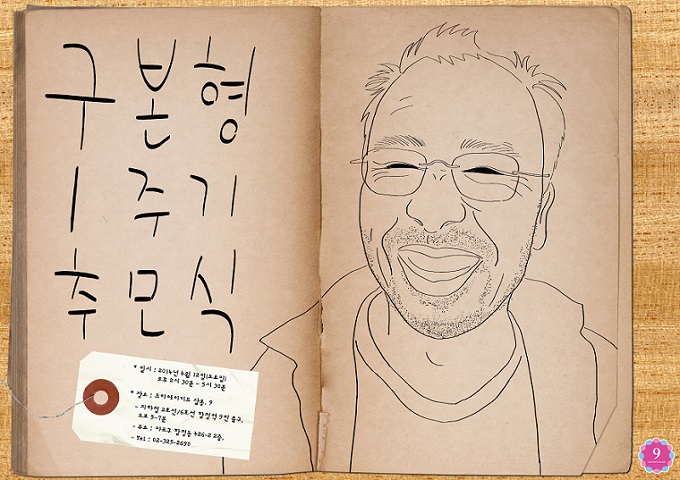 구본형
1주기
추모식
* 일시 : 2014년 4월 12일(토요일)
오후 2시 30분 ~ 5시 30분
* 장소 : 크리에이티브 살롱. 9
- 지하철 2호선/6호선 합정역 9번 출구,
도보 5-7분
- 주소 : 마포구 합정동 426-2 2층.
- Tel : 02-325-2690
9